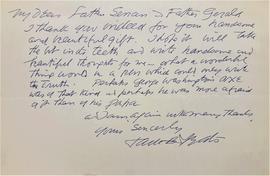 My Dear Father Senan & Father Gerald
I thank you indeed for your handsome
and beautiful gift. I hope it will take
the bit in its teeth and write handsome and
beautiful thoughts for me - what a wonderful
thing would be a pen which could only write
the Truth - Perhaps George Washington's AXE
was of that kind & perhaps he was more afraid
of it than of his Papa
again with many thanks,
Yours Sincerely